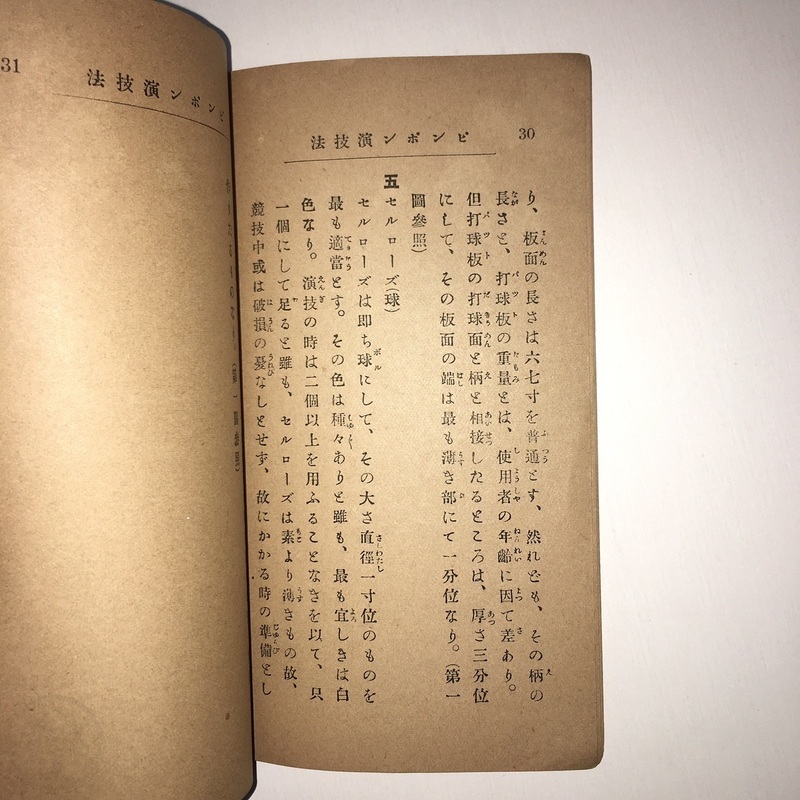 30
ピンポン演技法
り、板面の長さは六七寸を普通とす、然れども、その柄の
長さと、打球板の重量とは、使用者の年齢に因て差あり。
但打球板の打球面と柄と相接したるところは、厚さ三分位
にして、その板面の端は最も薄き部にて一分位なり。（第一
圖參照）
五
セルローズ（球）
セルローズは即ち球にして、その大さ直徑一寸位のものを
最も適當とす。その色は種々ありと雖も、最も宜しきは白
色なり。演技の時は二個以上を用ふることなきを以て、只
一個にして足ると雖も、セルローズは素より薄きもの故、
競技中或は破損の憂なしとせず、故にかかる時の準備とし
31
ピンポン演技法